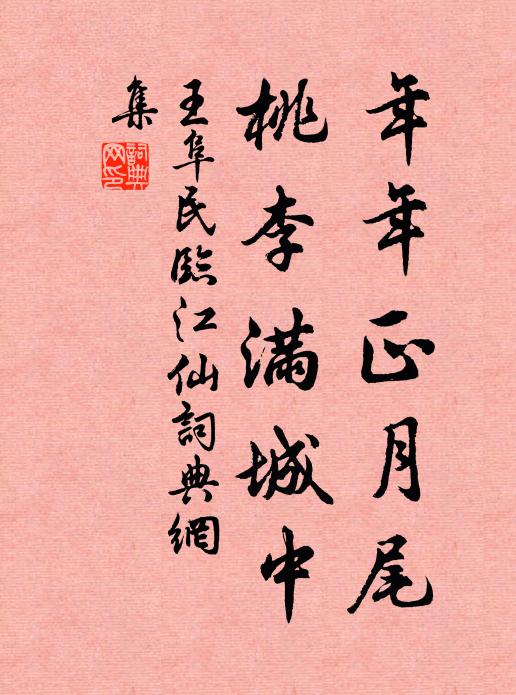 年年正月尾
桃李满城中
王阜民臨江仙詞典網
集
詞典
网印